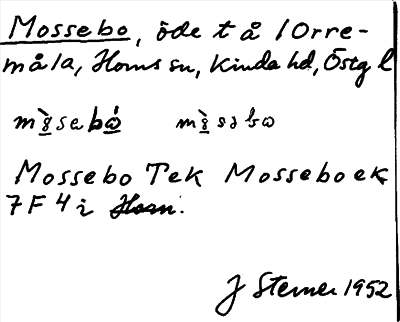 Mossebo, öde t å /Orre-
måla, Horns sn, Kinda hd, Östg l
Mossebo Tek Mosseboek
7F 4 i Horn.
J Sterner 1952